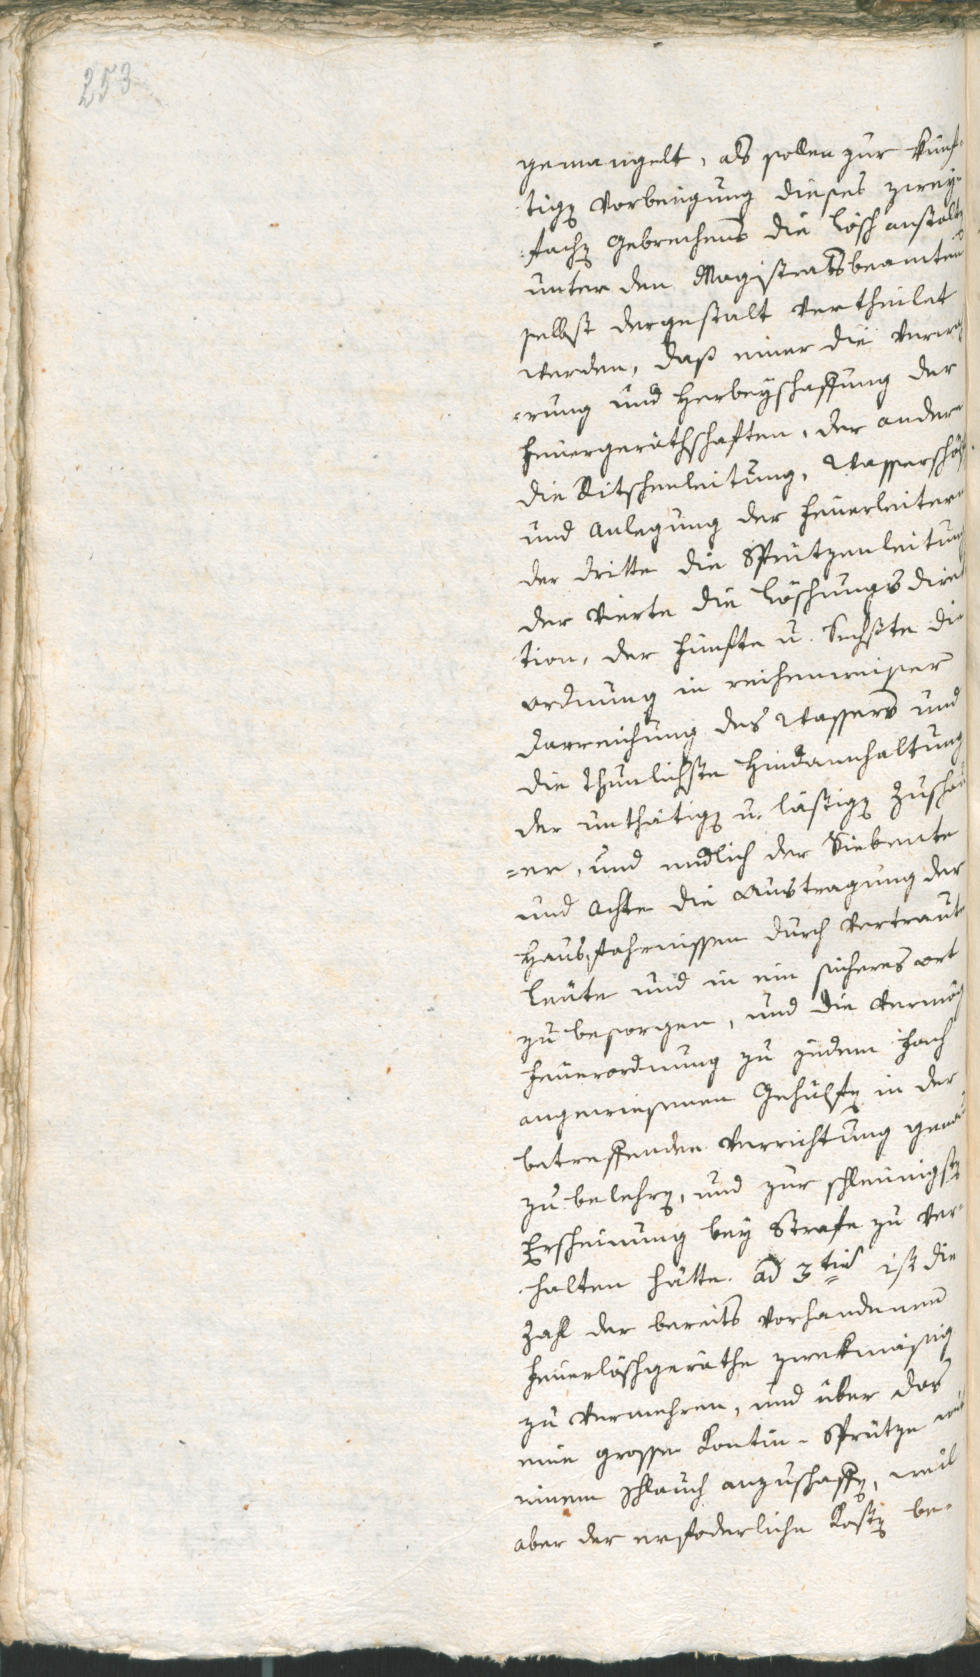 253
gemangelt, als sollen zur künf-
tigen Vorbeigung dieses zwey-
fachen Gebrechens die Lösch anstalten
unter den Magistratsbeamten
selbst dergestalt vertheilet
werden, daß einer die
rung und Herbeyschaffung der
Feuergeräthschaften, der andere
die Ritschenleitung, Wasserschöpf
und Anlegung der Feuerleitern
der dritte die Sprützenleitung
der Vierte die Löschungsdirek
tion, der Fünfte u. Sechste die
ordnung in reihenweiser
darreichung des Wassers und
die thunlichste Hindannhaltung
der unthätigen u. lästigen Zuschau
=er, und endlich der Siebente
und Achte die Austragung der
Hausfahrnissen durch Vertraute
Leute und in ein sicheres ort
zu besorgen, und die vermög
Feuerordnung zu jedem Fach
angewiesenen Gehülfen in der
betreffenden Verrichtung genau
zu belehren, und zur schleunigsten
Erscheinung bey Strafe zu ver-
halten hätte. ad 3tio ist die
Zahl der bereits vorhandenen
Feuerlöschgeräthe zwekmäßig
zu vermehren, und über das
eine grosse Kontin-Sprütze mit
einem Schlauch anzuschaffen, weil
aber der erfoderliche Kosten be-